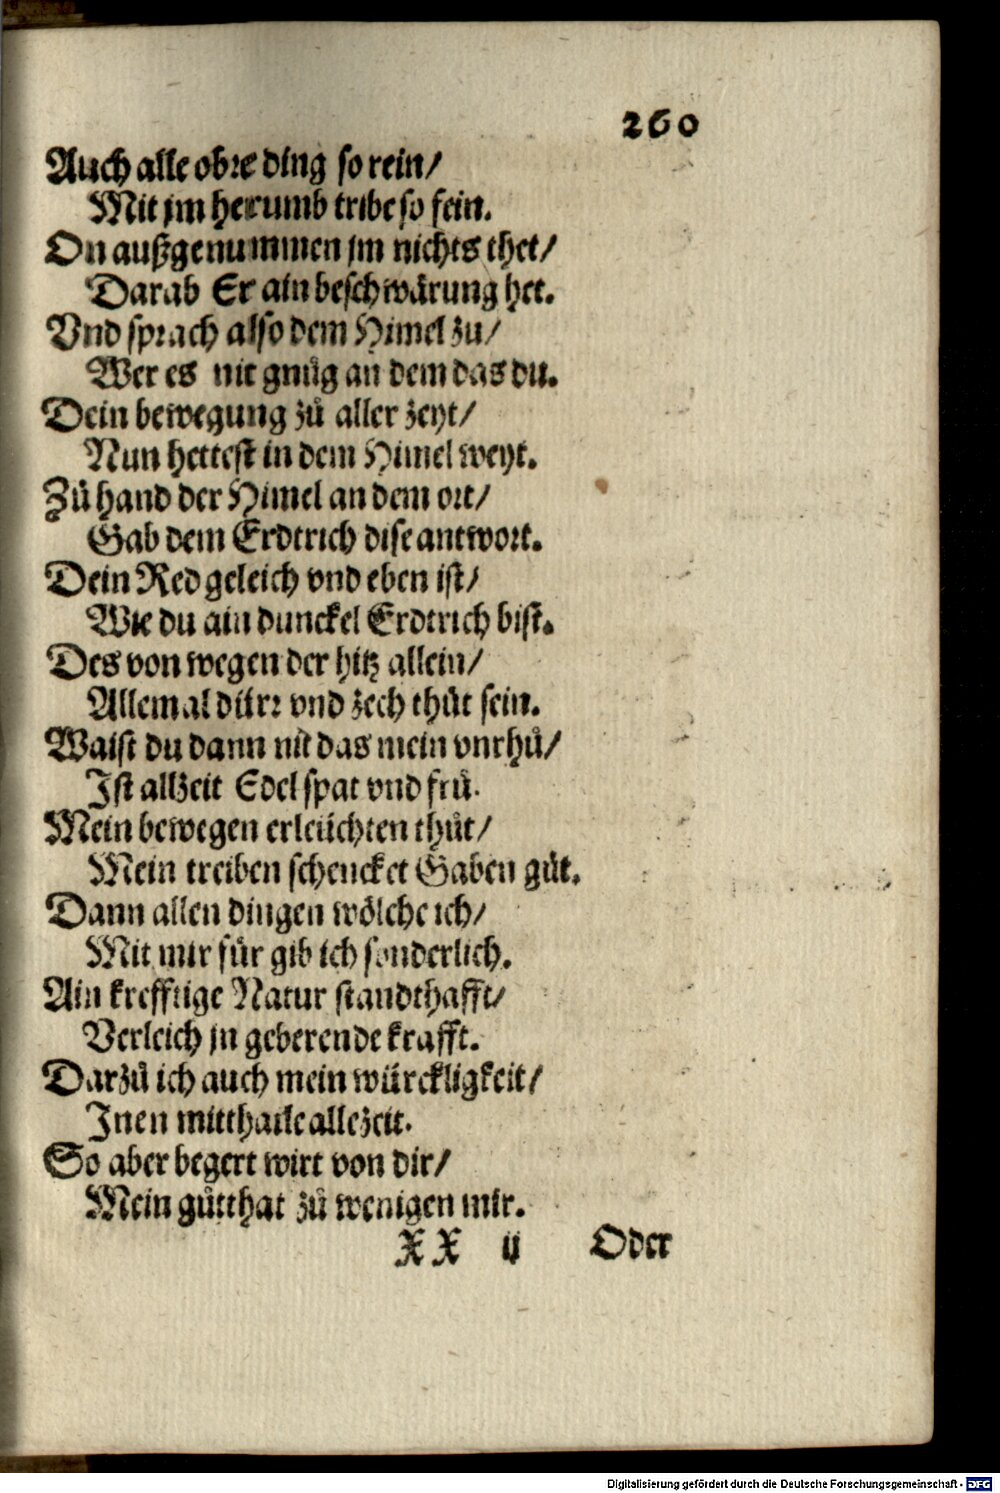 260
Auch alle obre ding so rein/
Mit jm herumb tribe so fein.
On außgenummen jm nichts thet/
Darab Er ain beschwärung het.
Vnd sprach also dem Himel zu/
Wer es nit gnůg an dem das du.
Dein bewegung zů aller zeyt/
Nun hettest in dem Himel weyt.
Zů hand der Himel an dem ort/
Gab dem Erdtrich dise antwort.
Dein Red geleich vnd eben ist/
Wie du ain dunckel Erdtrich bist.
Des von wegen der hitz allein/
Allemal dürr vnd zech thůt sein.
Waist du dann nit das mein vnrhů/
Ist allzeit Edel spat vnd frů.
Mein bewegen erleüchten thůt/
Mein treiben schencket Gaben gůt.
Dann allen dingen wölche ich/
Mit mir für gib ich sonderlich.
Ain krefftige Natur standthafft/
Verleich jn geberende krafft.
Darzů ich auch mein würckligkeit/
Inen mitthaile allezeit.
So aber begert wirt von dir/
Mein gůtthat zů wenigen mir.
XX ij Oder
Digitalisierung gefördert durch die Deutsche Forschungsgemeinschaft - DFG